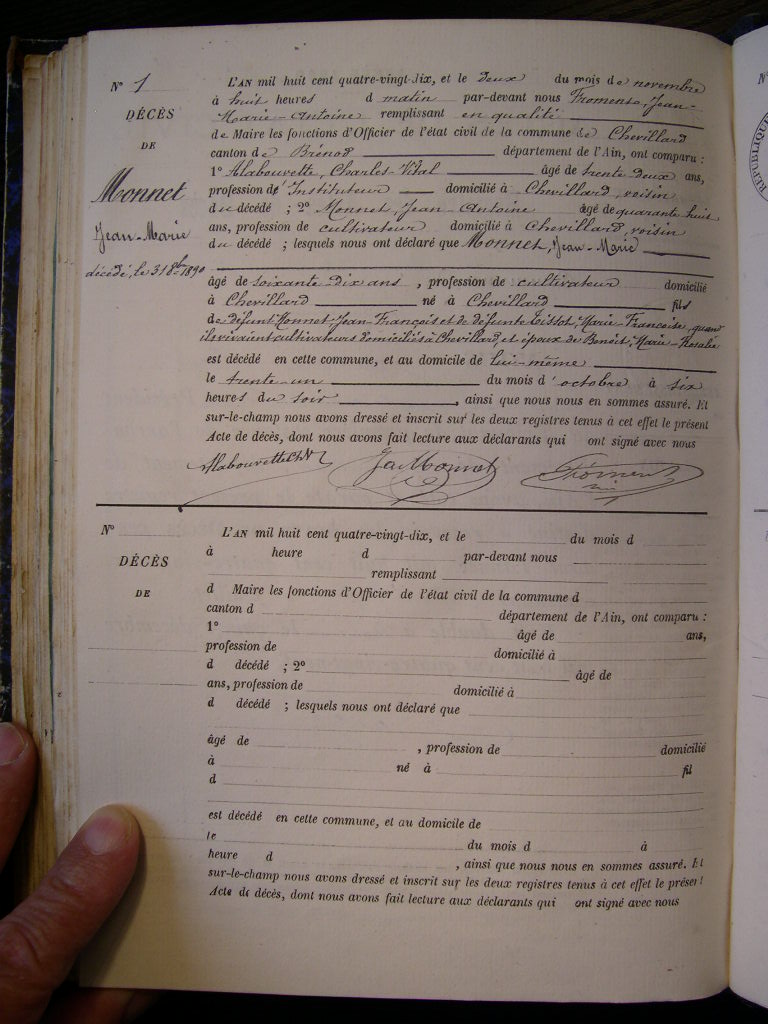 N° 1
DÉCÈS
DE
Monnet
Jean-Marie
décédé, le 31 8bre 1890
L'AN mil huit cent quatre-vingt-dix, et le deux du mois de novembre
à huit heures d matin par-devant nous Froment, Jean-
Marie-Antoine remplissant en qualité
de Maire les fonctions d'Officier de l'état civil de la commune de Chevillard
canton de Brénod département de l'Ain, ont comparu :
1° Alabouvette, Charles-Vital âgé de trente deux ans,
profession d' Instituteur domicilié à Chevillard, voisin
du décédé ; 2° Monnet, Jean-Antoine âgé de quarante huit
ans, profession de cultivateur domicilié à Chevillard, voisin
du décédé ; lesquels nous ont déclaré que Monnet, Jean-Marie
âgé de soixante dix ans , profession de cultivateur domicilié
à Chevillard né à Chevillard fils
de défunt Monnet-Jean-François et de défunte Tissot, Marie-Françoise, quand
ils vivaient cultivateurs domiciliés à Chevillard, et époux de Benoit, Marie-Rosalie
est décédé en cette commune, et au domicile de lui-même
le trente-un du mois d'octobre à six
heures du soir , ainsi que nous nous en sommes assuré. Et
sur-le-champ nous avons dressé et inscrit sur les deux registres tenus à cet effet le présent
Acte de décès, dont nous avons fait lecture aux déclarants qui ont signé avec nous
Alabouvette Ch V Ja Monnet Froment
N°
DÉCÈS
DE
L'AN mil huit cent quatre-vingt-dix, et le du mois d
à heure d par-devant nous
remplissant
d Maire les fonctions d'Officier de l'état civil de la commune d
canton d département de l'Ain, ont comparu :
1° âgé de ans,
profession de domicilié à
d décédé ; 2° âgé de
ans, profession de domicilié à
d décédé ; lesquels nous ont déclaré que
âgé de , profession de domicilié
à né à fil
d
est décédé en cette commune, et au domicile de
le du mois d à
heure d , ainsi que nous nous en sommes assuré. Et
sur-le-champ nous avons dressé et inscrit sur les deux registres tenus à cet effet le présent
Acte de décès, dont nous avons fait lecture aux déclarants qui ont signé avec nous
N°
REPUBLIQUE